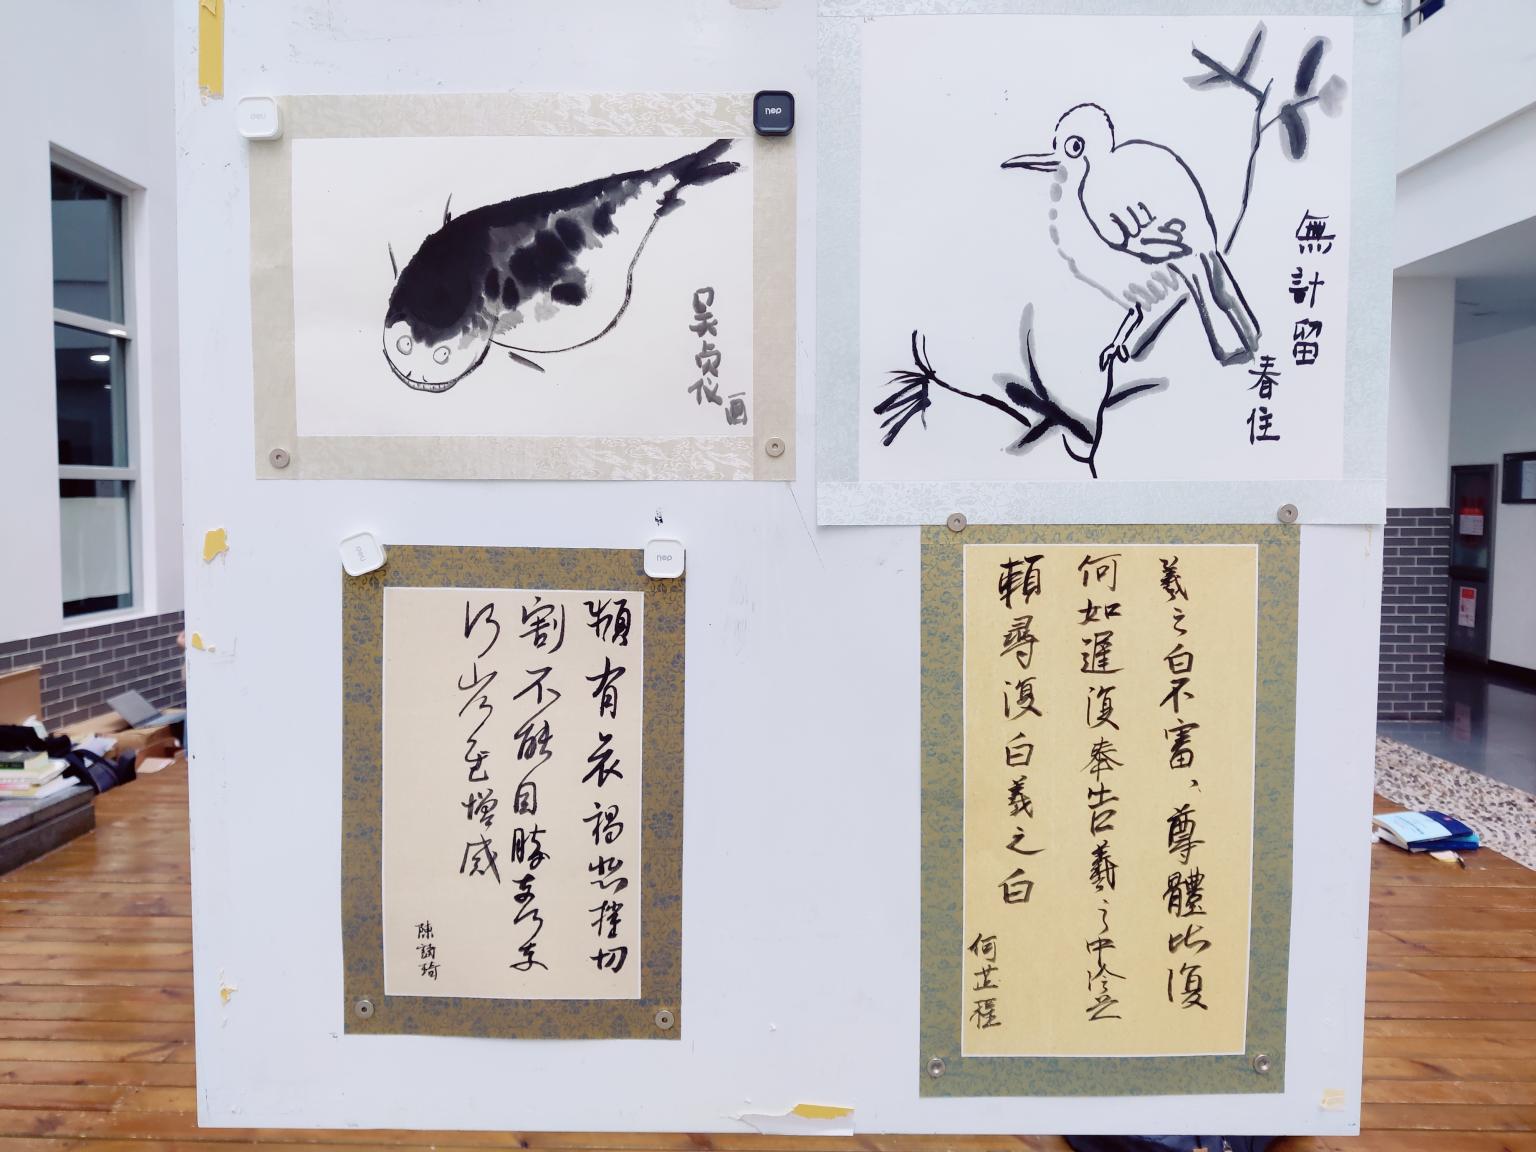 吴贞仪
画
無計留
春住
頻有哀禍悲摧切
割不能自勝奈何奈
何省慰增感
陳詩琦
羲之白不審、尊體比復
何如遲復奉告羲之中冷無
賴尋復白羲之白
何芷程